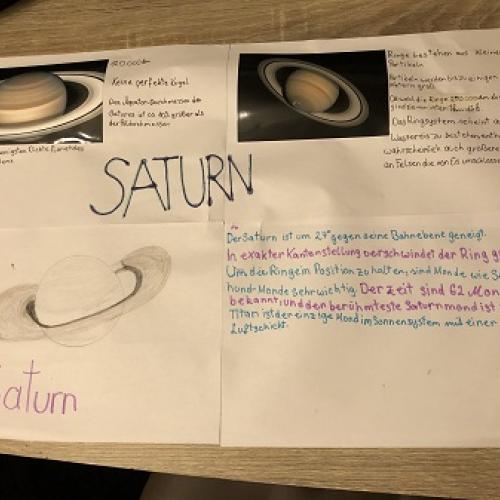 Keine perfekte Kugel.
Der Äquatordurchmesser des
Saturns ist ca. größer als
der Poldurchmesser
Ringe bestehen aus kleinen
Partikeln
Partikel werden bis zu einigen
Metern groß.
Obwohl die Ringe
Das Ringsystem scheint a
Wassereis zu bestehen
wahrscheinlich auch größere
an Felsen die von Eis umschlosse
SATURN
Der Saturn ist um 27° gegen seine Bahnebene geneigt.
In exakter Kantenstellung verschwindet der Ring g
Um die Ringe in Position zu halten, sind Monde wie S
hund-Monde sehr wichtig. Der zeit sind 62 Mon
bekannt und den berühmteste Saturnmond ist
Titan ist der einzige Mond im Sonnensystem mit einer
Luftschicht.
aturn